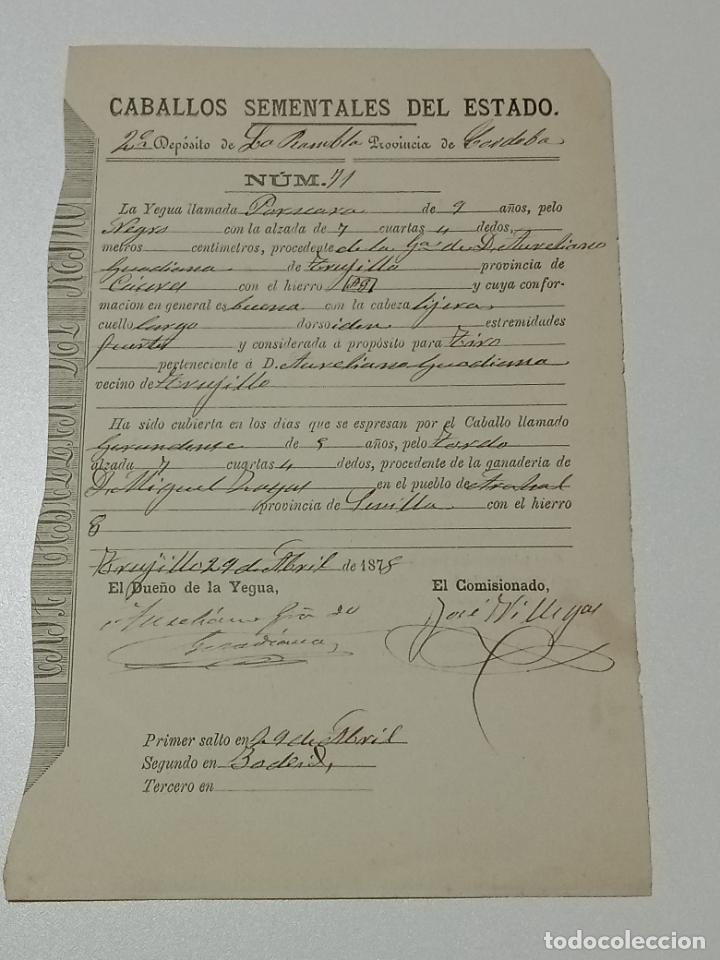 CABALLOS SEMENTALES DEL ESTADO.
2º Depósito de La Rambla Provincia de Cordoba
NÚM. 71
La Yegua llamada de 9 años, pelo
Negro con la alzada de 7 cuartas 4 dedos,
metros centímetros, procedente de la Gª de D. Aureliano
Guadiana de Trujillo provincia de
Cáceres con el hierro y cuya confor-
macion en general es buena con la cabeza lijera
cuello largo dorso iden estremidades
fuertes y considerada á propósito para Tiro
perteneciente á D. Aureliano Guadiana
vecino de Trujillo
Ha sido cubierta en los dias que se espresan por el Caballo llamado
de 8 años, pelo Tordo
alzada 7 cuartas 4 dedos, procedente de la ganadería de
D. Miguel en el pueblo de Arahal
provincia de Sevilla con el hierro
8
Trujillo 29 de Abril de 1878
El Dueño de la Yegua,
El Comisionado,
Aureliano Gª de
Guadiana
José Villegas
Primer salto en 29 de Abril
Segundo en
Tercero en
CRIA CABALLAR DEL REINO
todocoleccion
todocoleccion.net